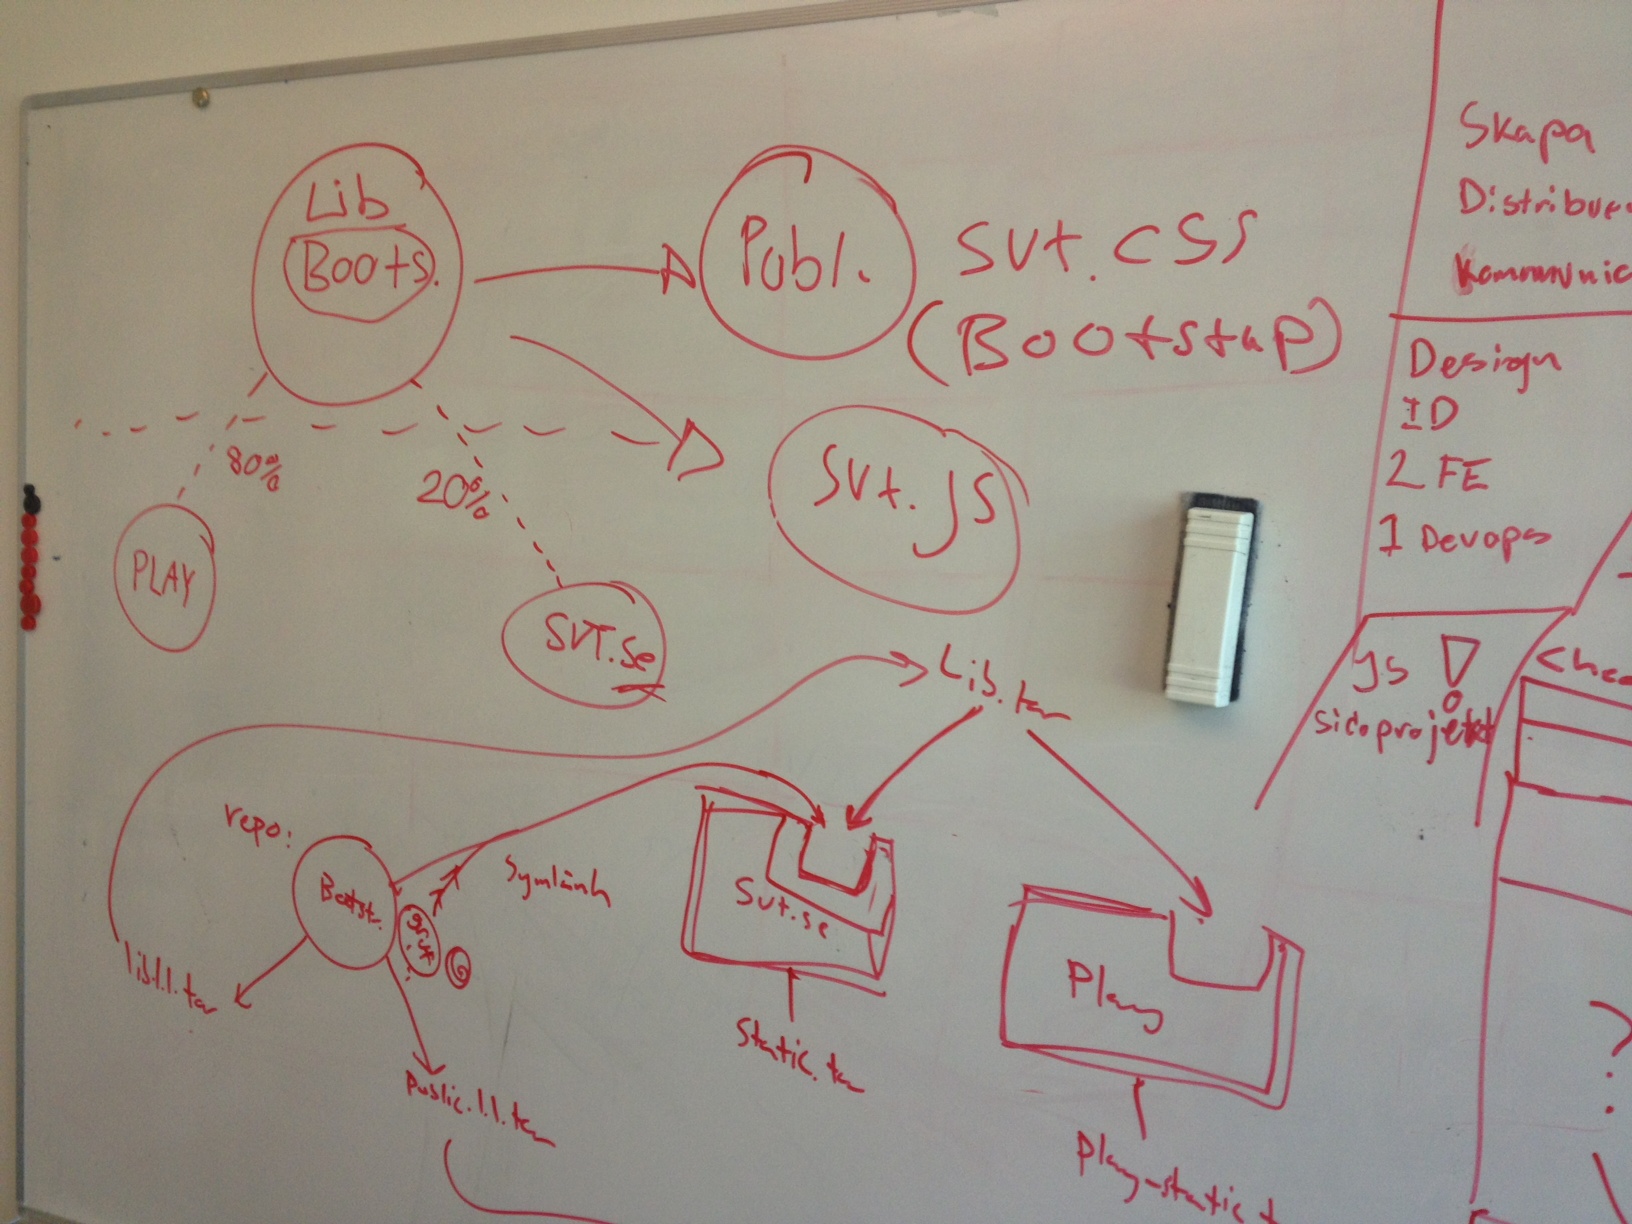 Lib
Boots.
Publ.
svt.css
(Bootstap)
80%
20%
svt.js
PLAY
SVT.se
Lib.tar
repo:
Bootst.
Symlänk
grunt
lib.1.1.tar
Public.1.1.tar
Svt.se
Static.tar
Play
Play-static.t
Skapa
Distribue
Kommunic
Design
ID
2 FE
1 Devops
ys
sidoprojekt
Chec
?